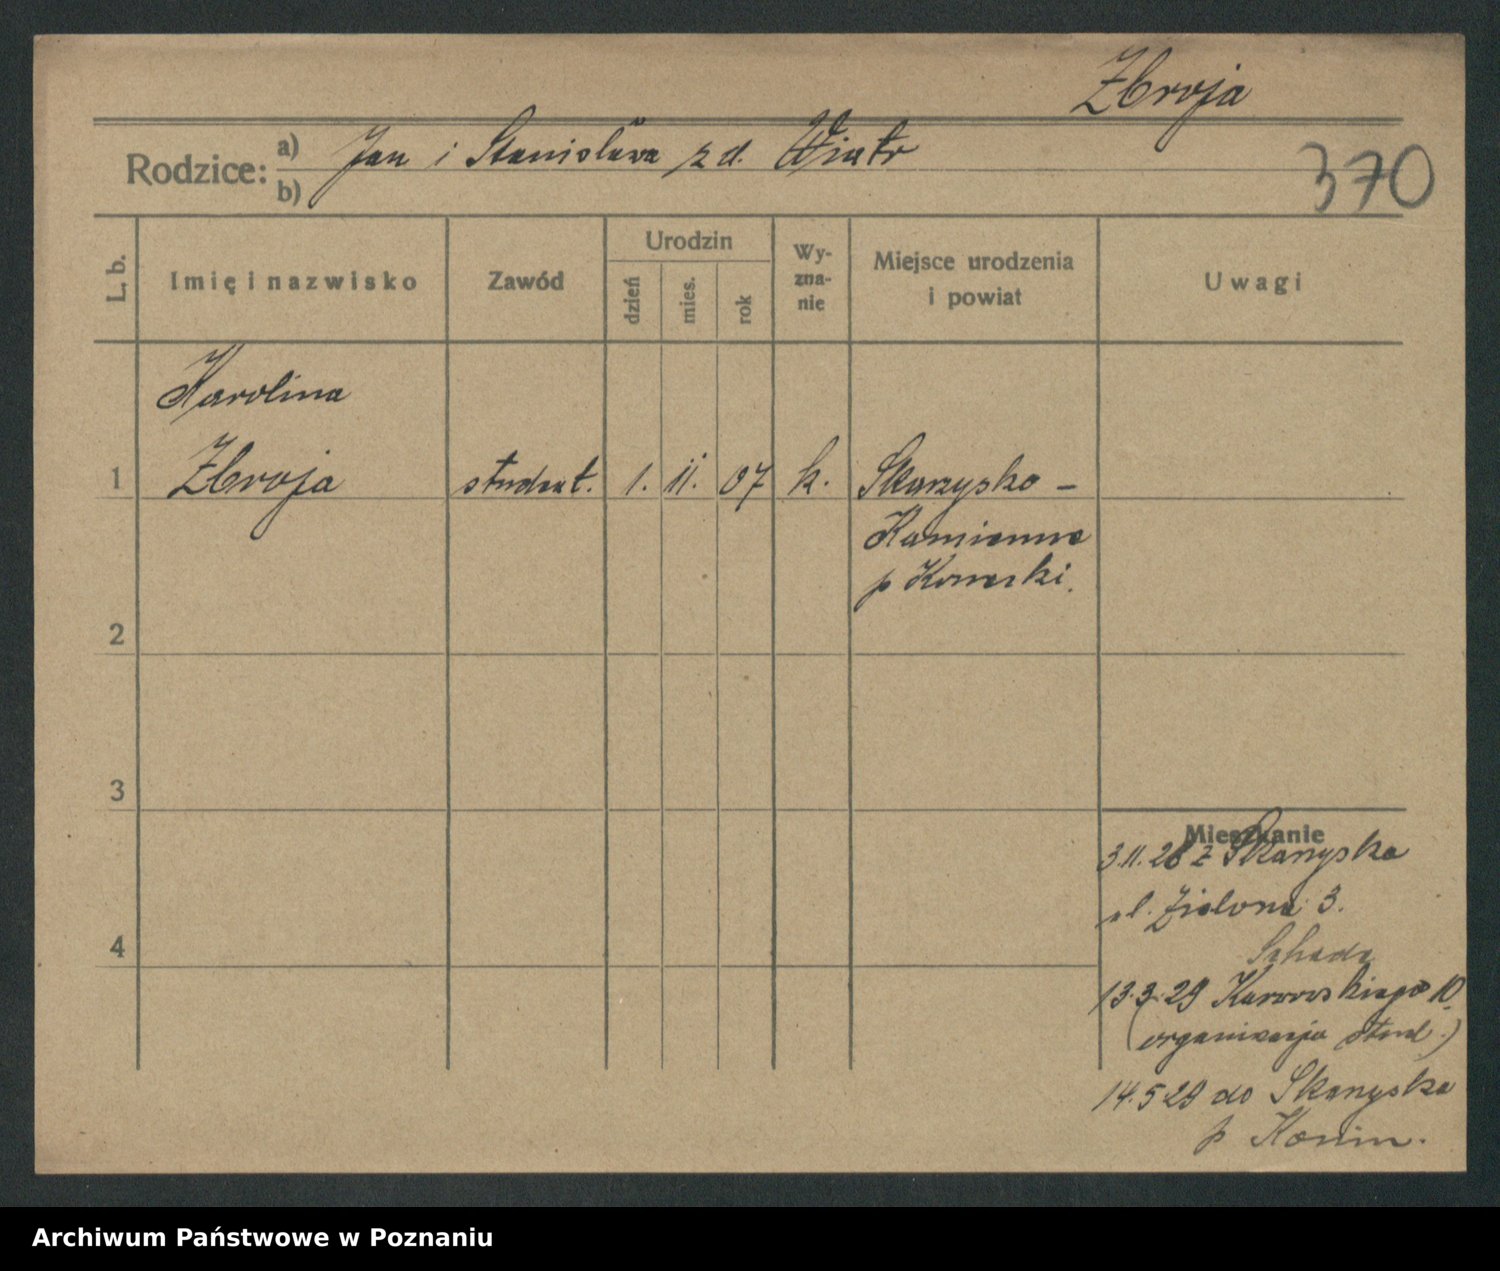 Zbroja
Rodzice: a) Jan i Stanisława z d. Wiatr
b)
370
L. b. Imię i nazwisko Zawód Urodzin dzień mies. rok Wy-zna-nie Miejsce urodzenia i powiat Uwagi
Karolina
1 Zbroja student. 1. 11. 07 k. Skarzysko –
Kamienna
p Konecki.
2
3
Mieszkanie
3.11.28 z Skarzyska
ul. Zielona 3.
4
13.3.29 Karwowskiego 10
(organizacja stud.)
14.5.29 do Skarzyska
p Konin.
Archiwum Państwowe w Poznaniu